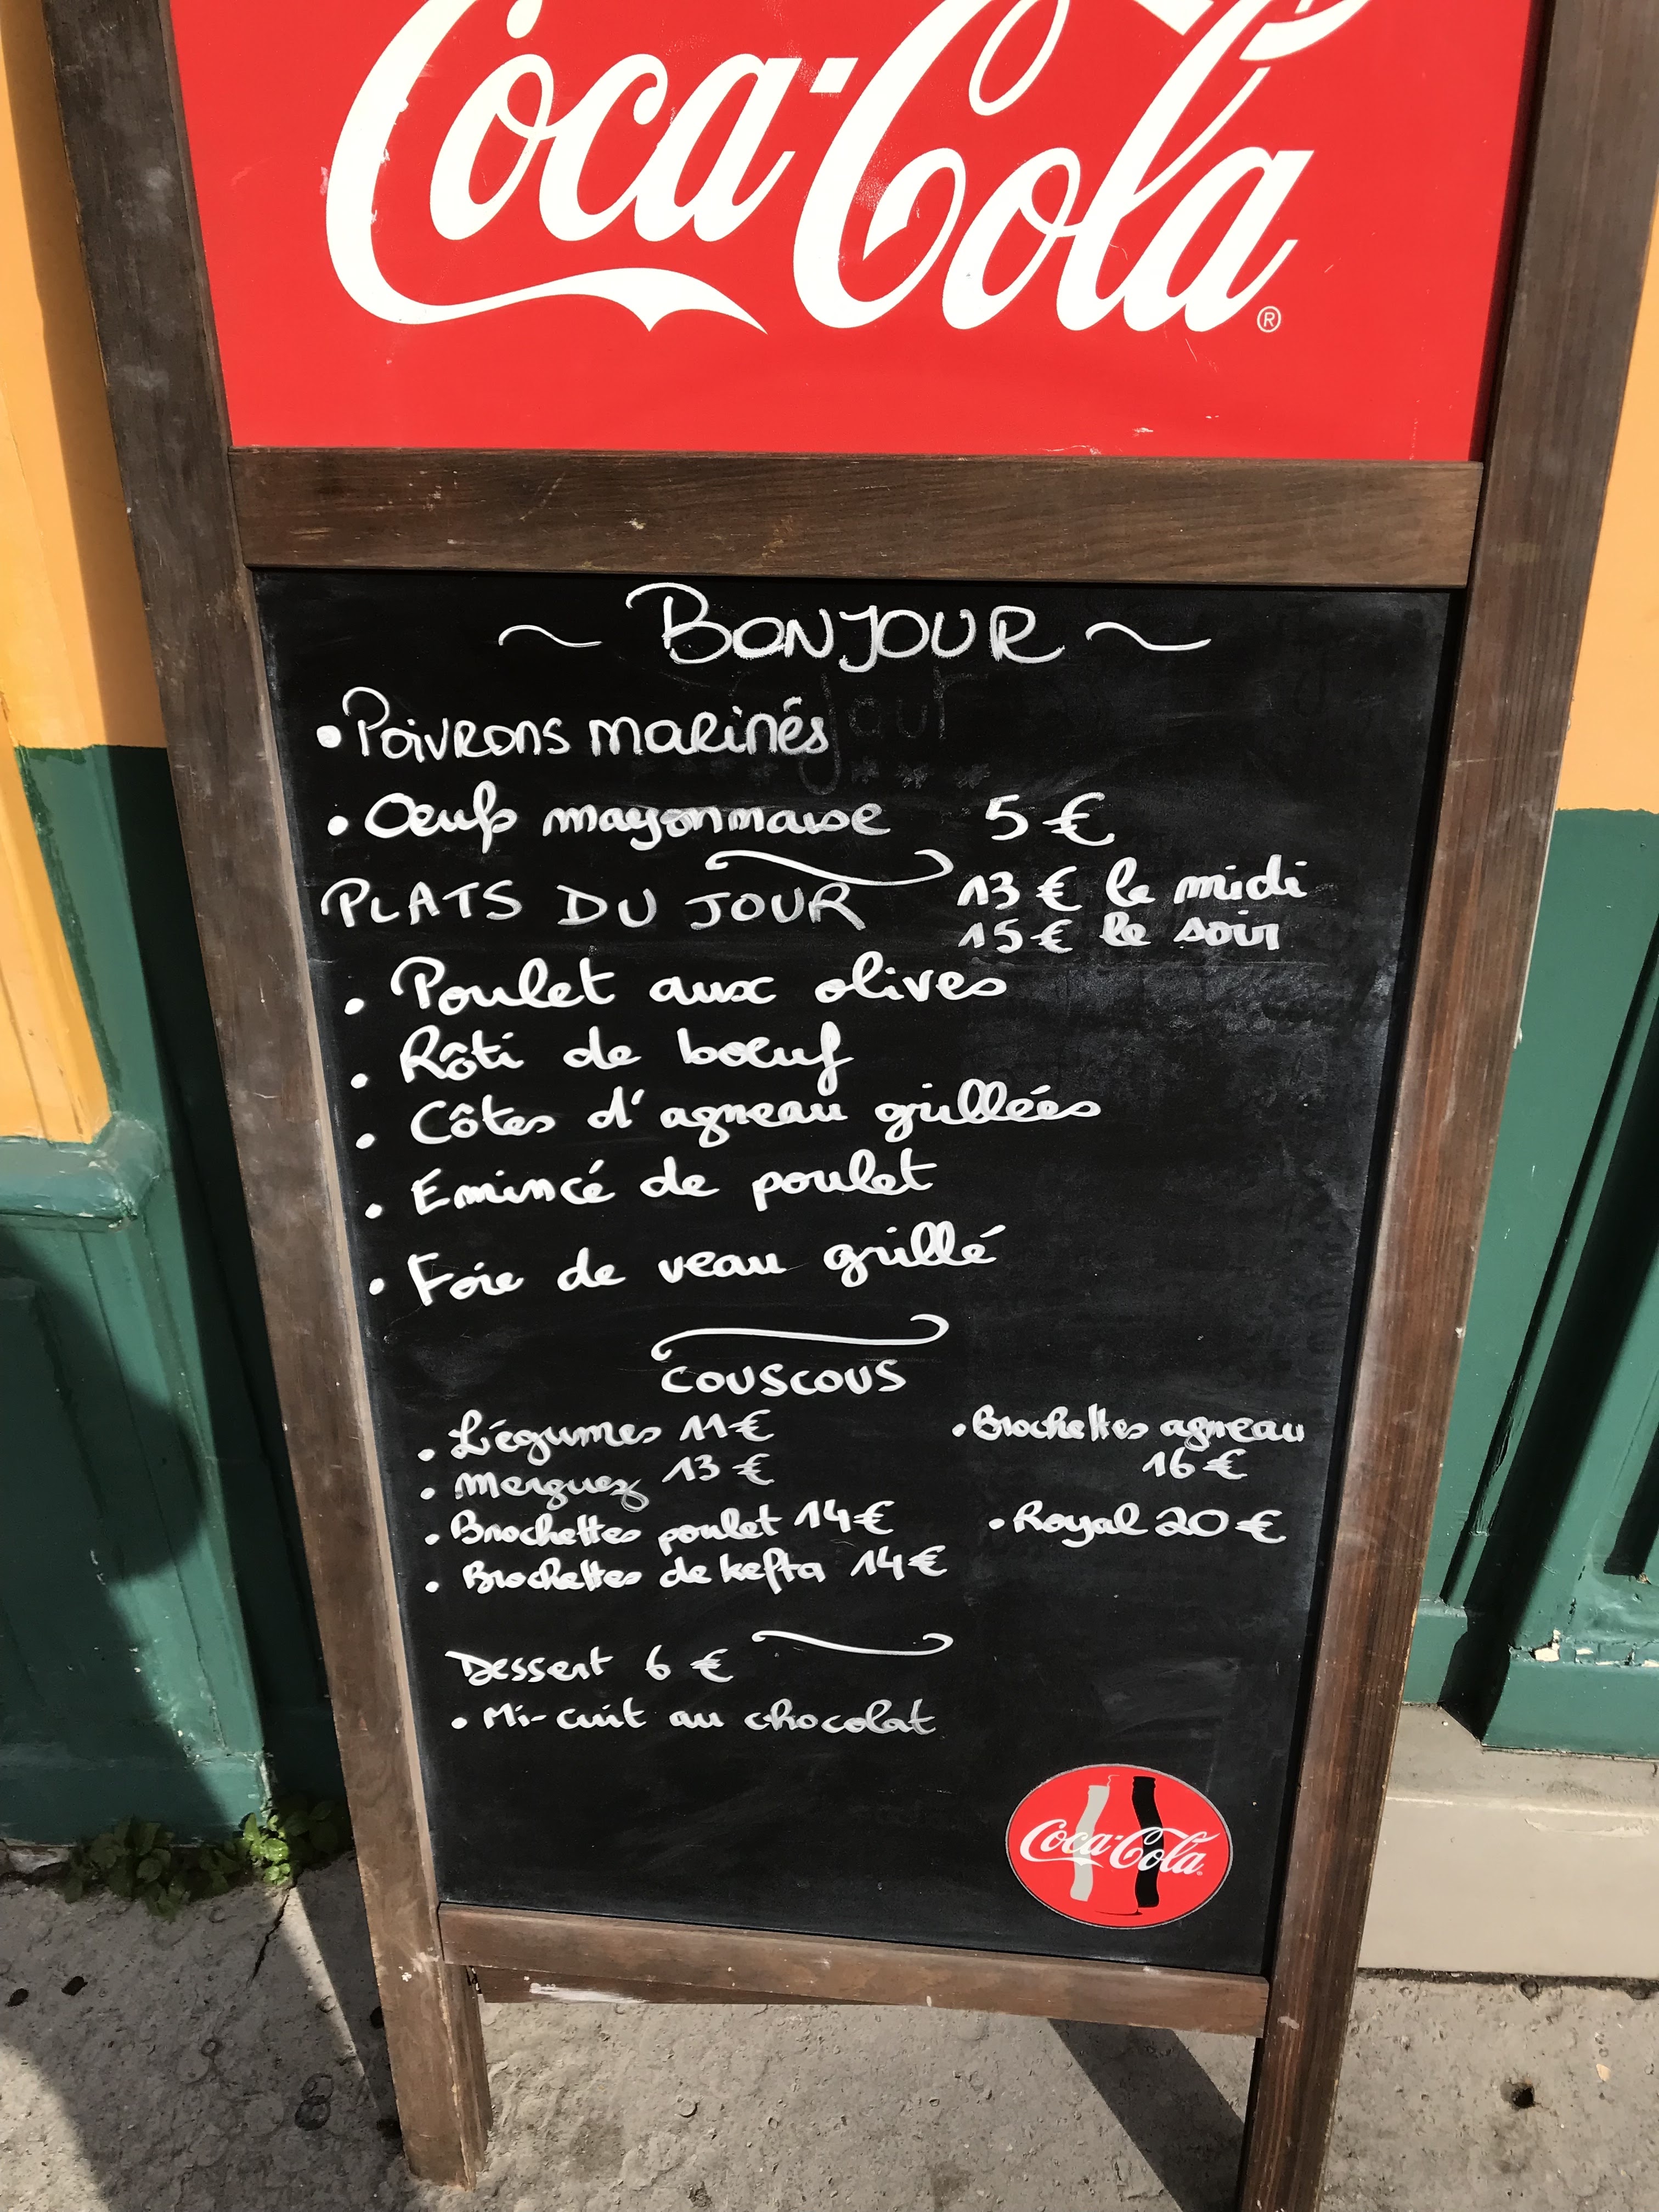 Coca-Cola®
~ BONJOUR ~
• Poivrons marinés
• Oeufs mayonnaise 5 €
PLATS DU JOUR 13 € le midi
15 € le soir
• Poulet aux olives
• Rôti de boeuf
• Côtes d'agneau grillées
• Emincé de poulet
• Foie de veau grillé
COUSCOUS
• Légumes 11 €
• Merguez 13 €
• Brochettes poulet 14 €
• Brochettes de kefta 14 €
• Brochettes agneau
16 €
• Royal 20 €
Dessert 6 €
• Mi-cuit au chocolat
Coca-Cola